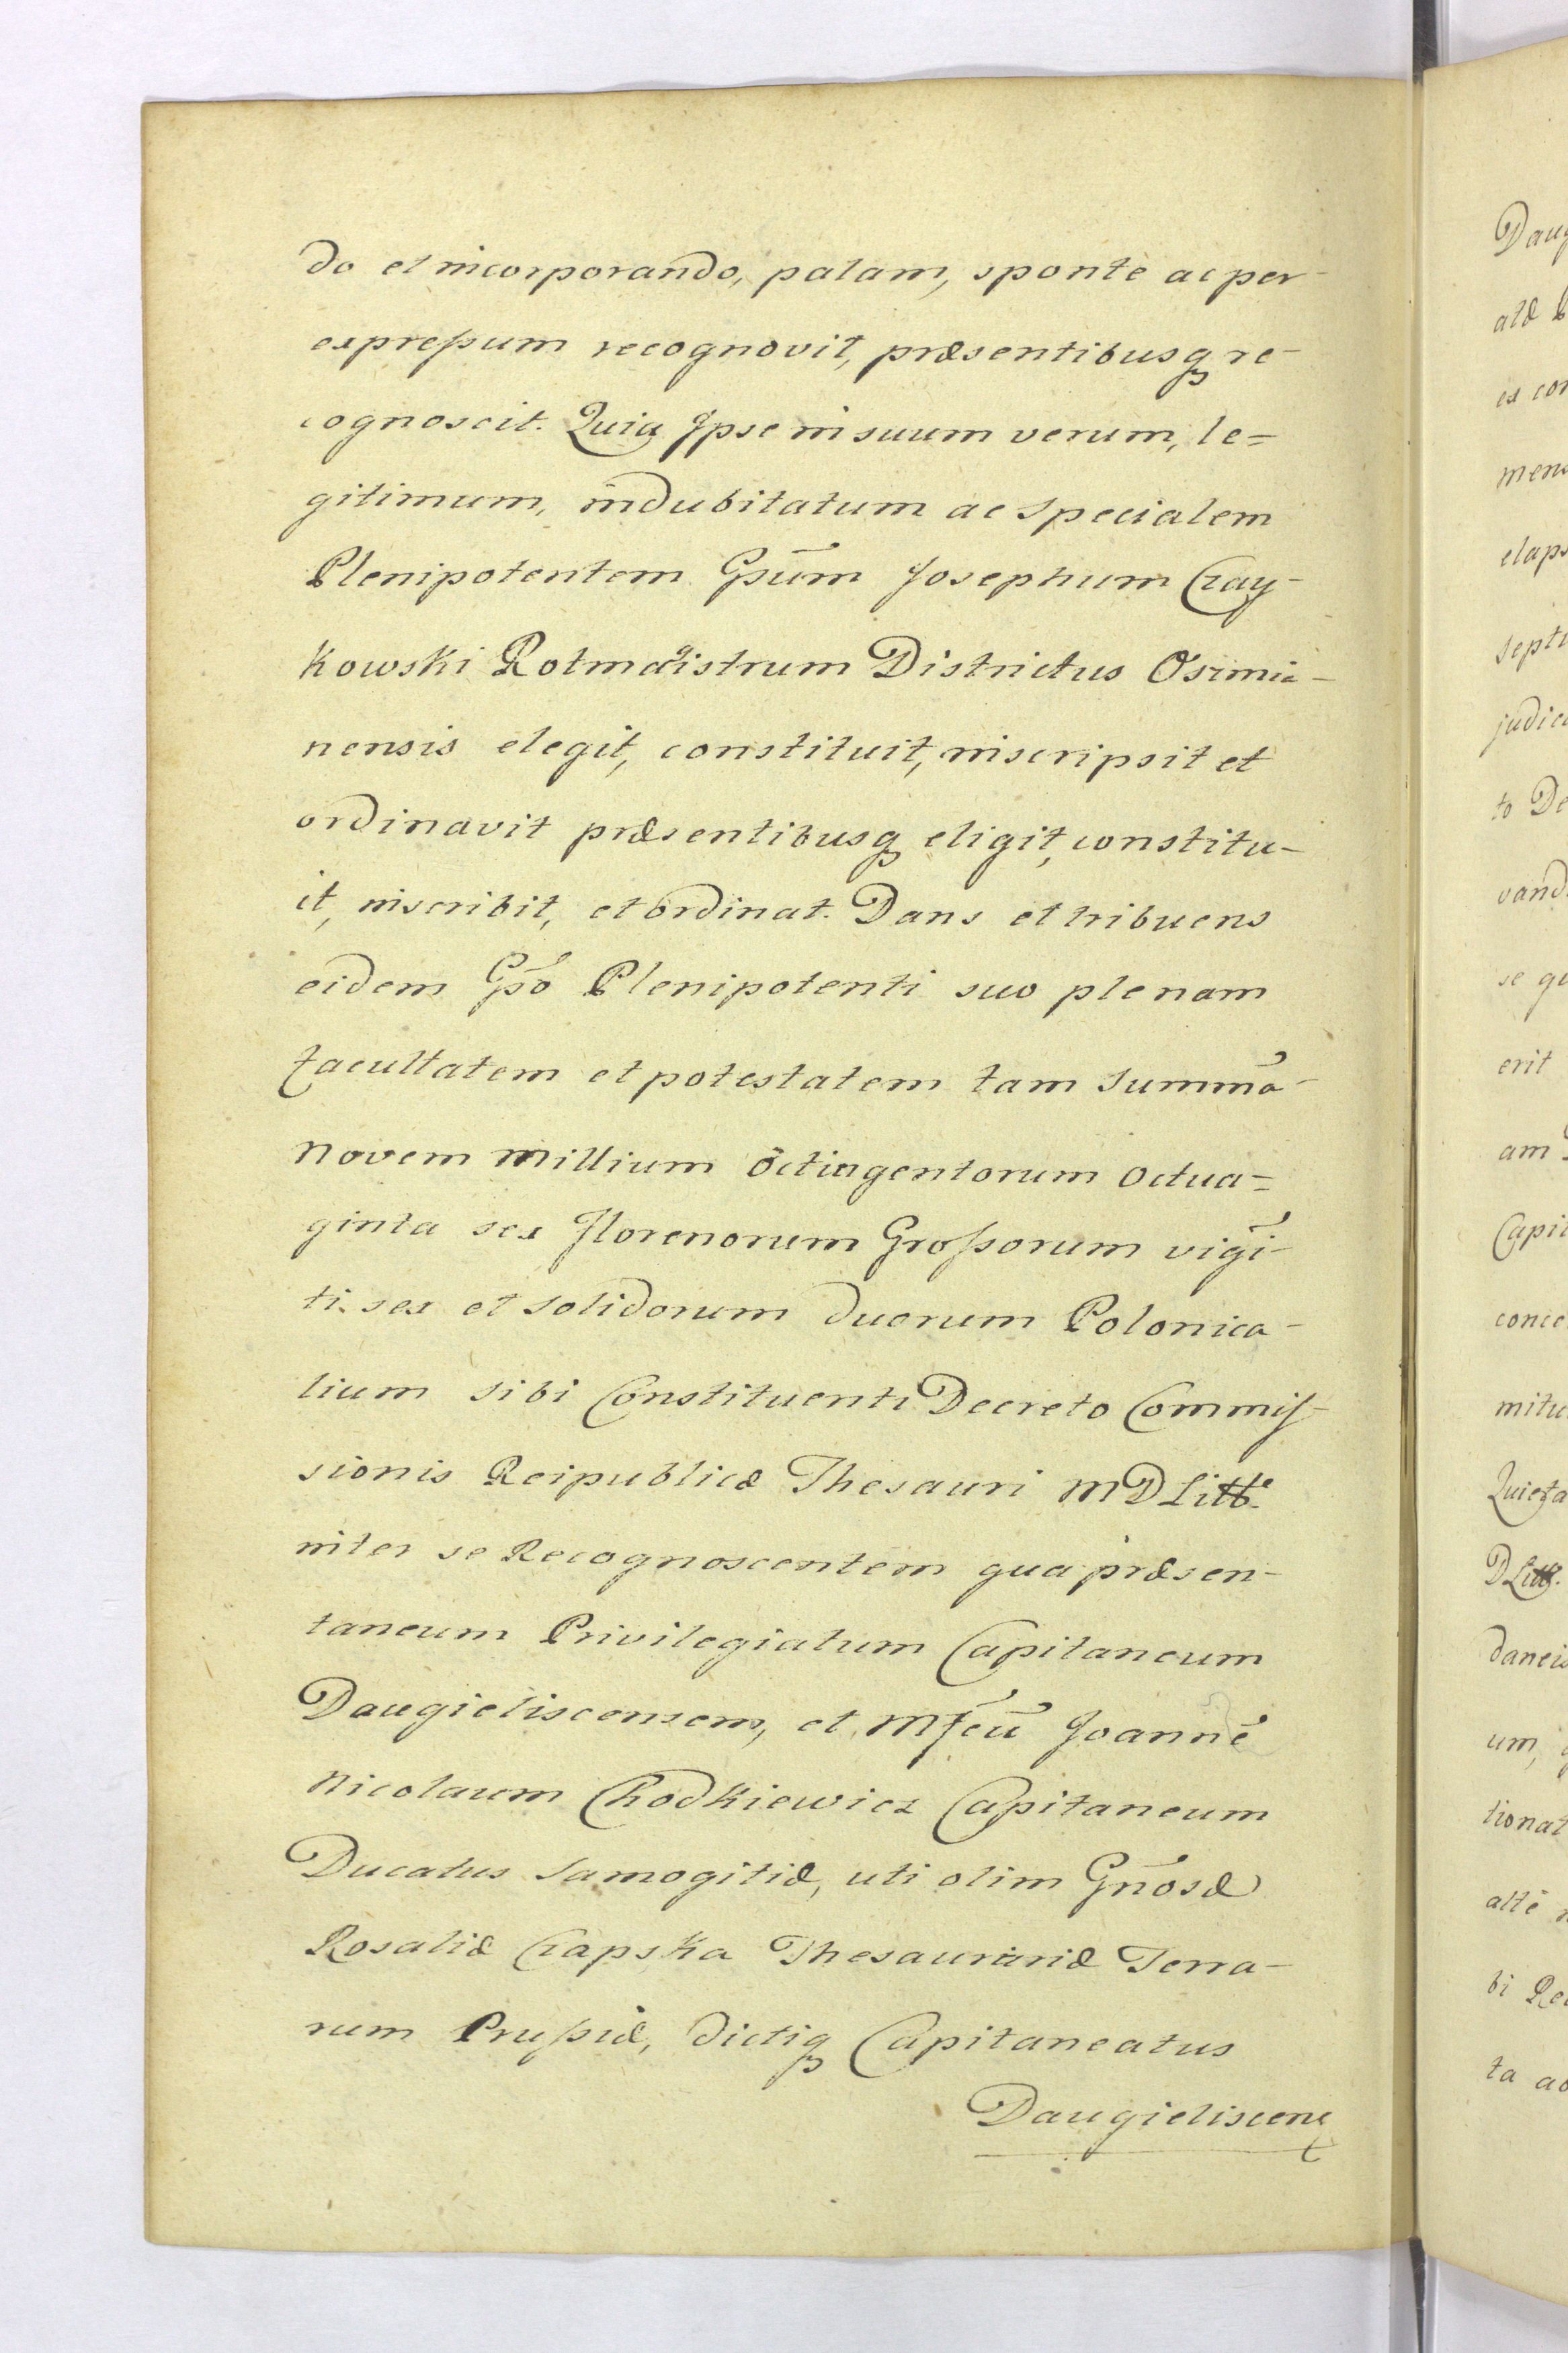 do et incorporando, palam, sponte ac per-
expreſsum recognovit, præsentibusq́ re-
cognoscit. Quia Ipse in suum verum, le=
gitimum, indubitatum ac specialem
Plenipotentem Gsum̄ Josephum Czay-
kowski Rotmagistrum Districtus Oszmia-
nensis elegit, constituit, inscripsit et
ordinavit præsentibusq́ eligit, constitu-
it, inscribit, et ordinat. Dans et tribuens
eidem Gsō Plenipotenti suo plenam
facultatem et potestatem tam Summā
Novem Millium Octingentorum Octua=
ginta sex Florenorum Groſsorum vigī-
ti sex et Solidorum duorum Polonica-
lium sibi Constituenti Decreto Commiſ-
sionis Reipublicæ Thesauri M D Litt
inter se Recognoscentem qua præsen-
taneum Privilegiatum Capitaneum
Daugieliscensem, et Mfcū Joannē
Nicolaum Chodkiewicz Capitaneum
Ducatus Samogitiæ, uti olim Gnōsæ
Rosaliæ Czapska Thesaurariæ Terra-
rum Pruſsiæ, dictiq́ Capitaneatus
Daugieliscens
Daug
atæ
ex con
mens
elaps
septi
judica
to De
vand
se qu
erit
am
Capit
conce
mitu
Quieta
D Litt.
daneis
um,
tionat
altē
bi Re
ta ad